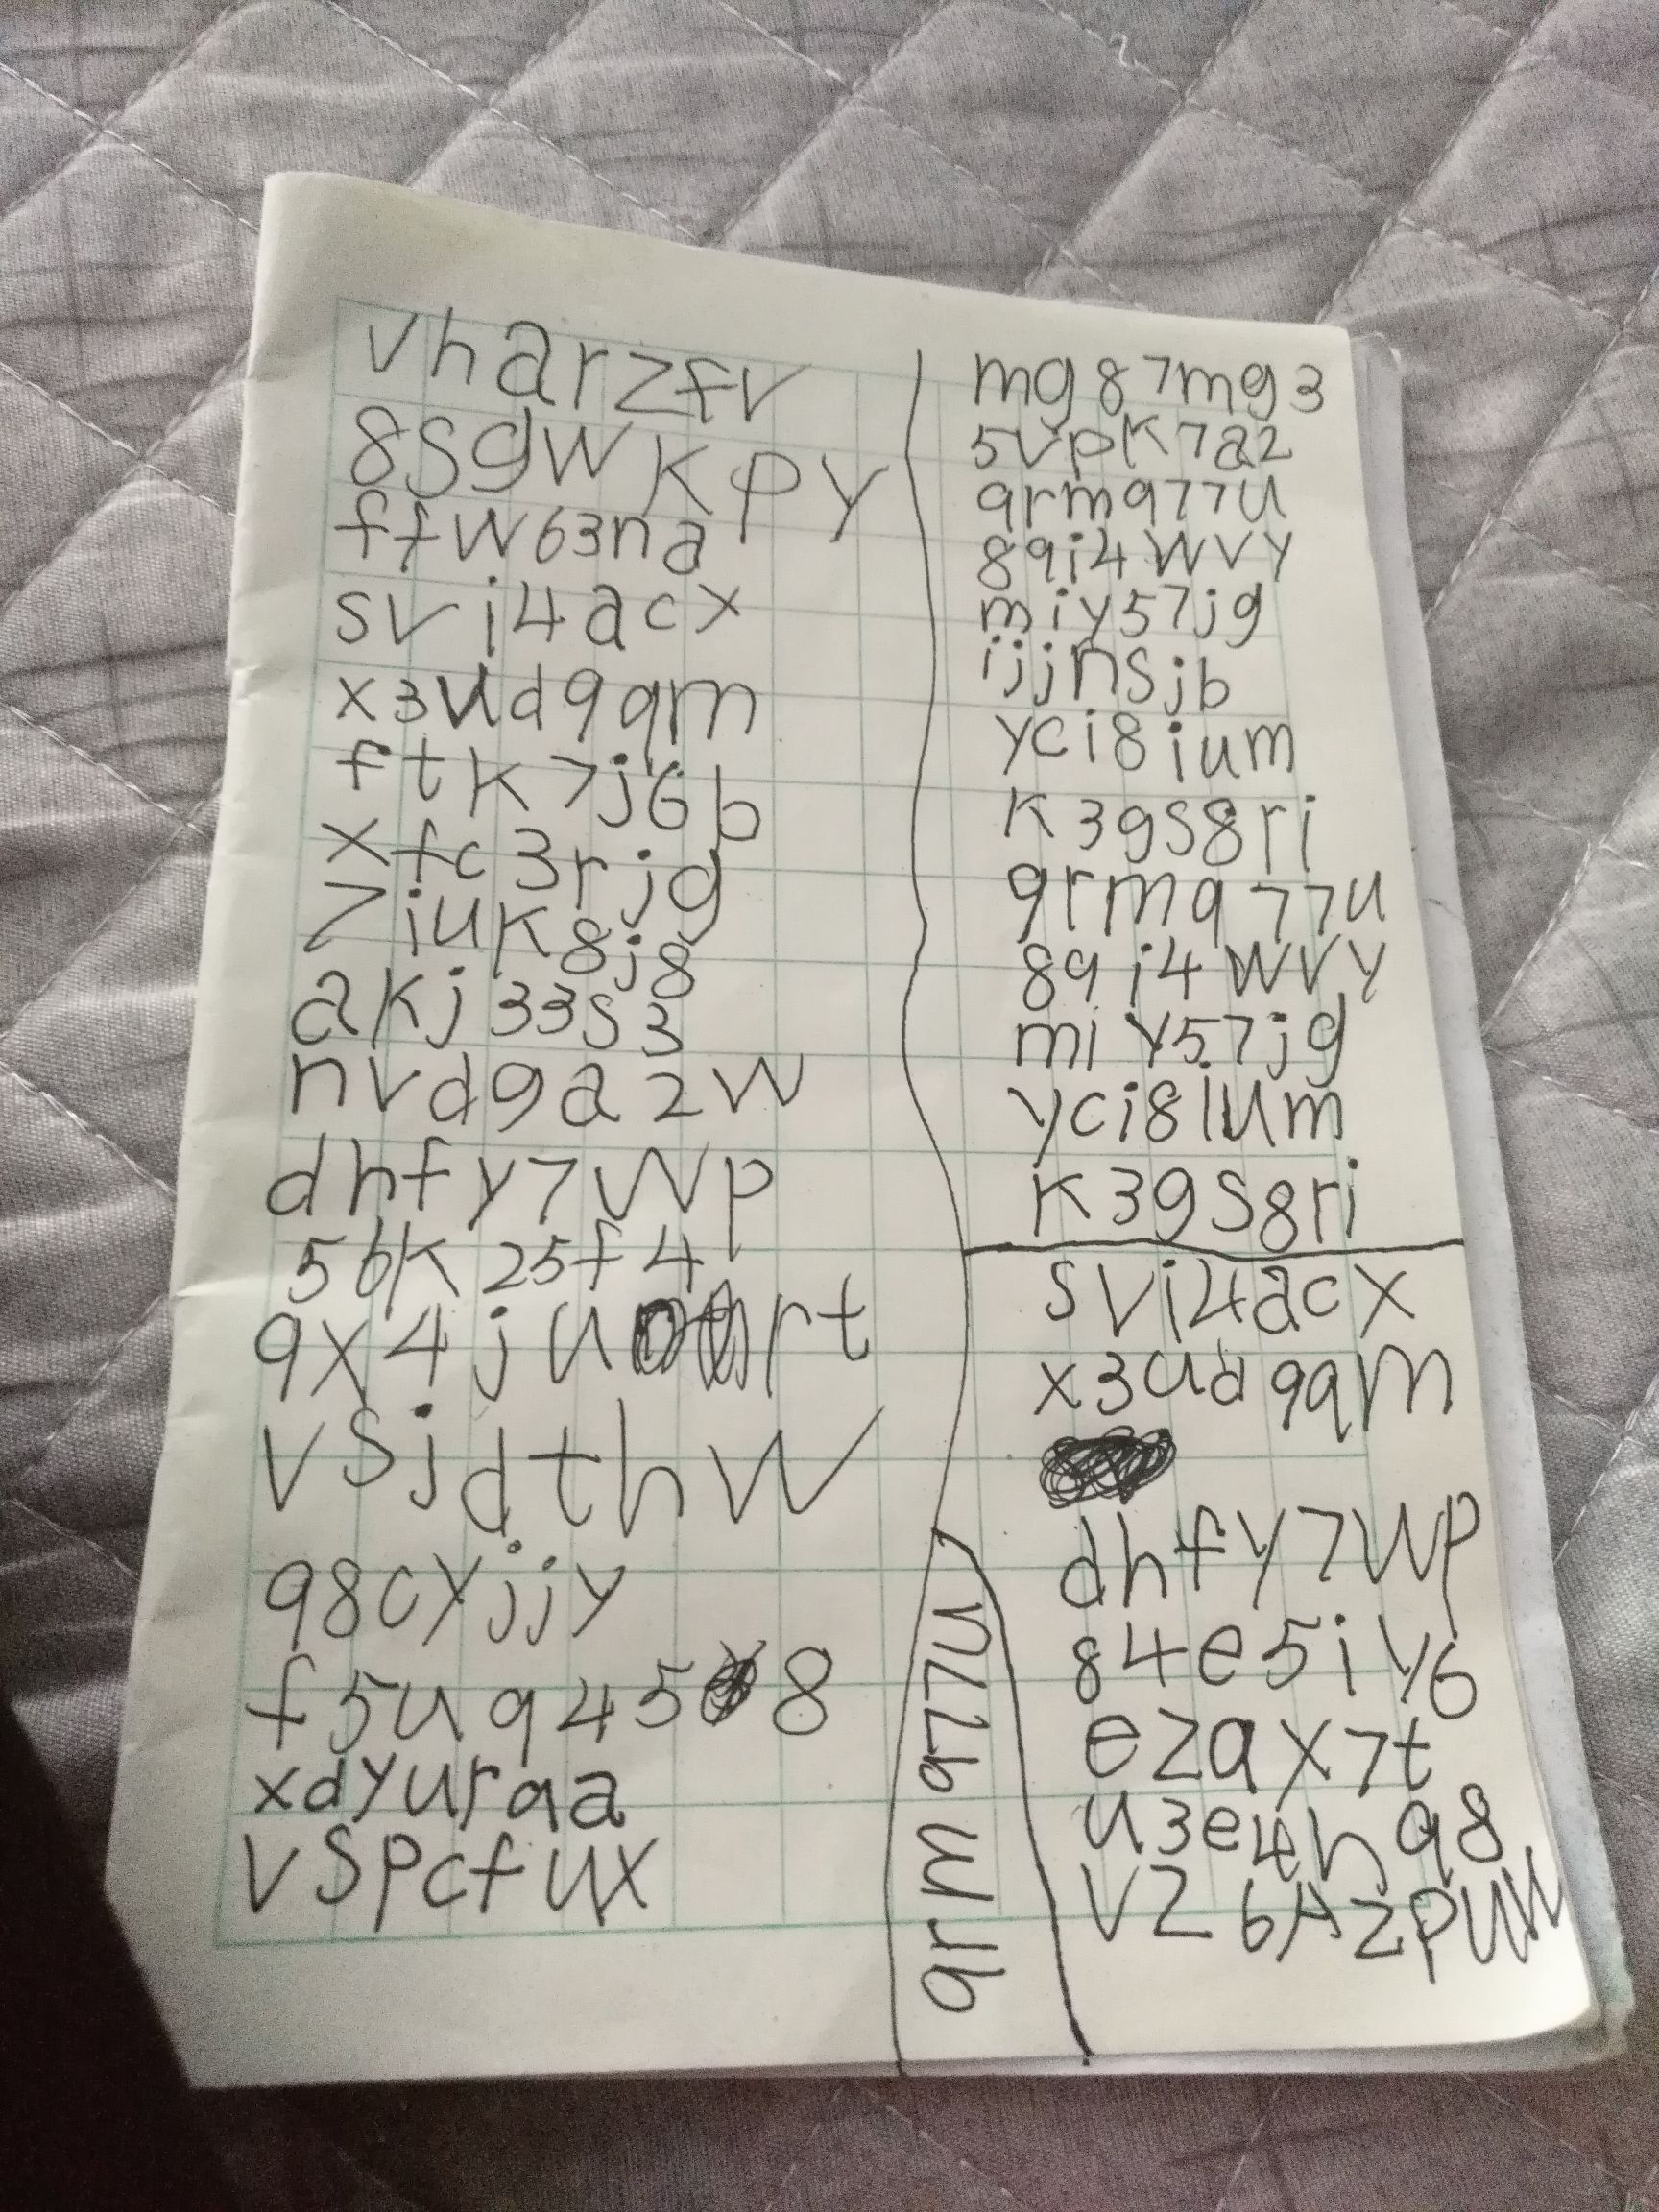 vharzfv
8sgwkpy
ffw63na
svi4acx
x3ud9qm
ftk7j6b
xfc3rjg
7iuk8j8
akj33s3
nvdga2w
dhfy7wp
56k25f4
9x4jurt
vsjdthw
98cyjjy
f5uq458
xdyuraa
vspcfux
mg87mg3
5vpk7a2
qrmq77u
89i4wvy
miy57jg
ijjnsjb
yci8ium
k3gs8ri
qrmq77u
89i4wvy
miy57jg
yci8ium
k3gs8ri
svi4acx
x3ud9qm
dhfy7wp
84e5iy6
ezax7t
u3e4hq8
vz6Azpuw
qrmq77u